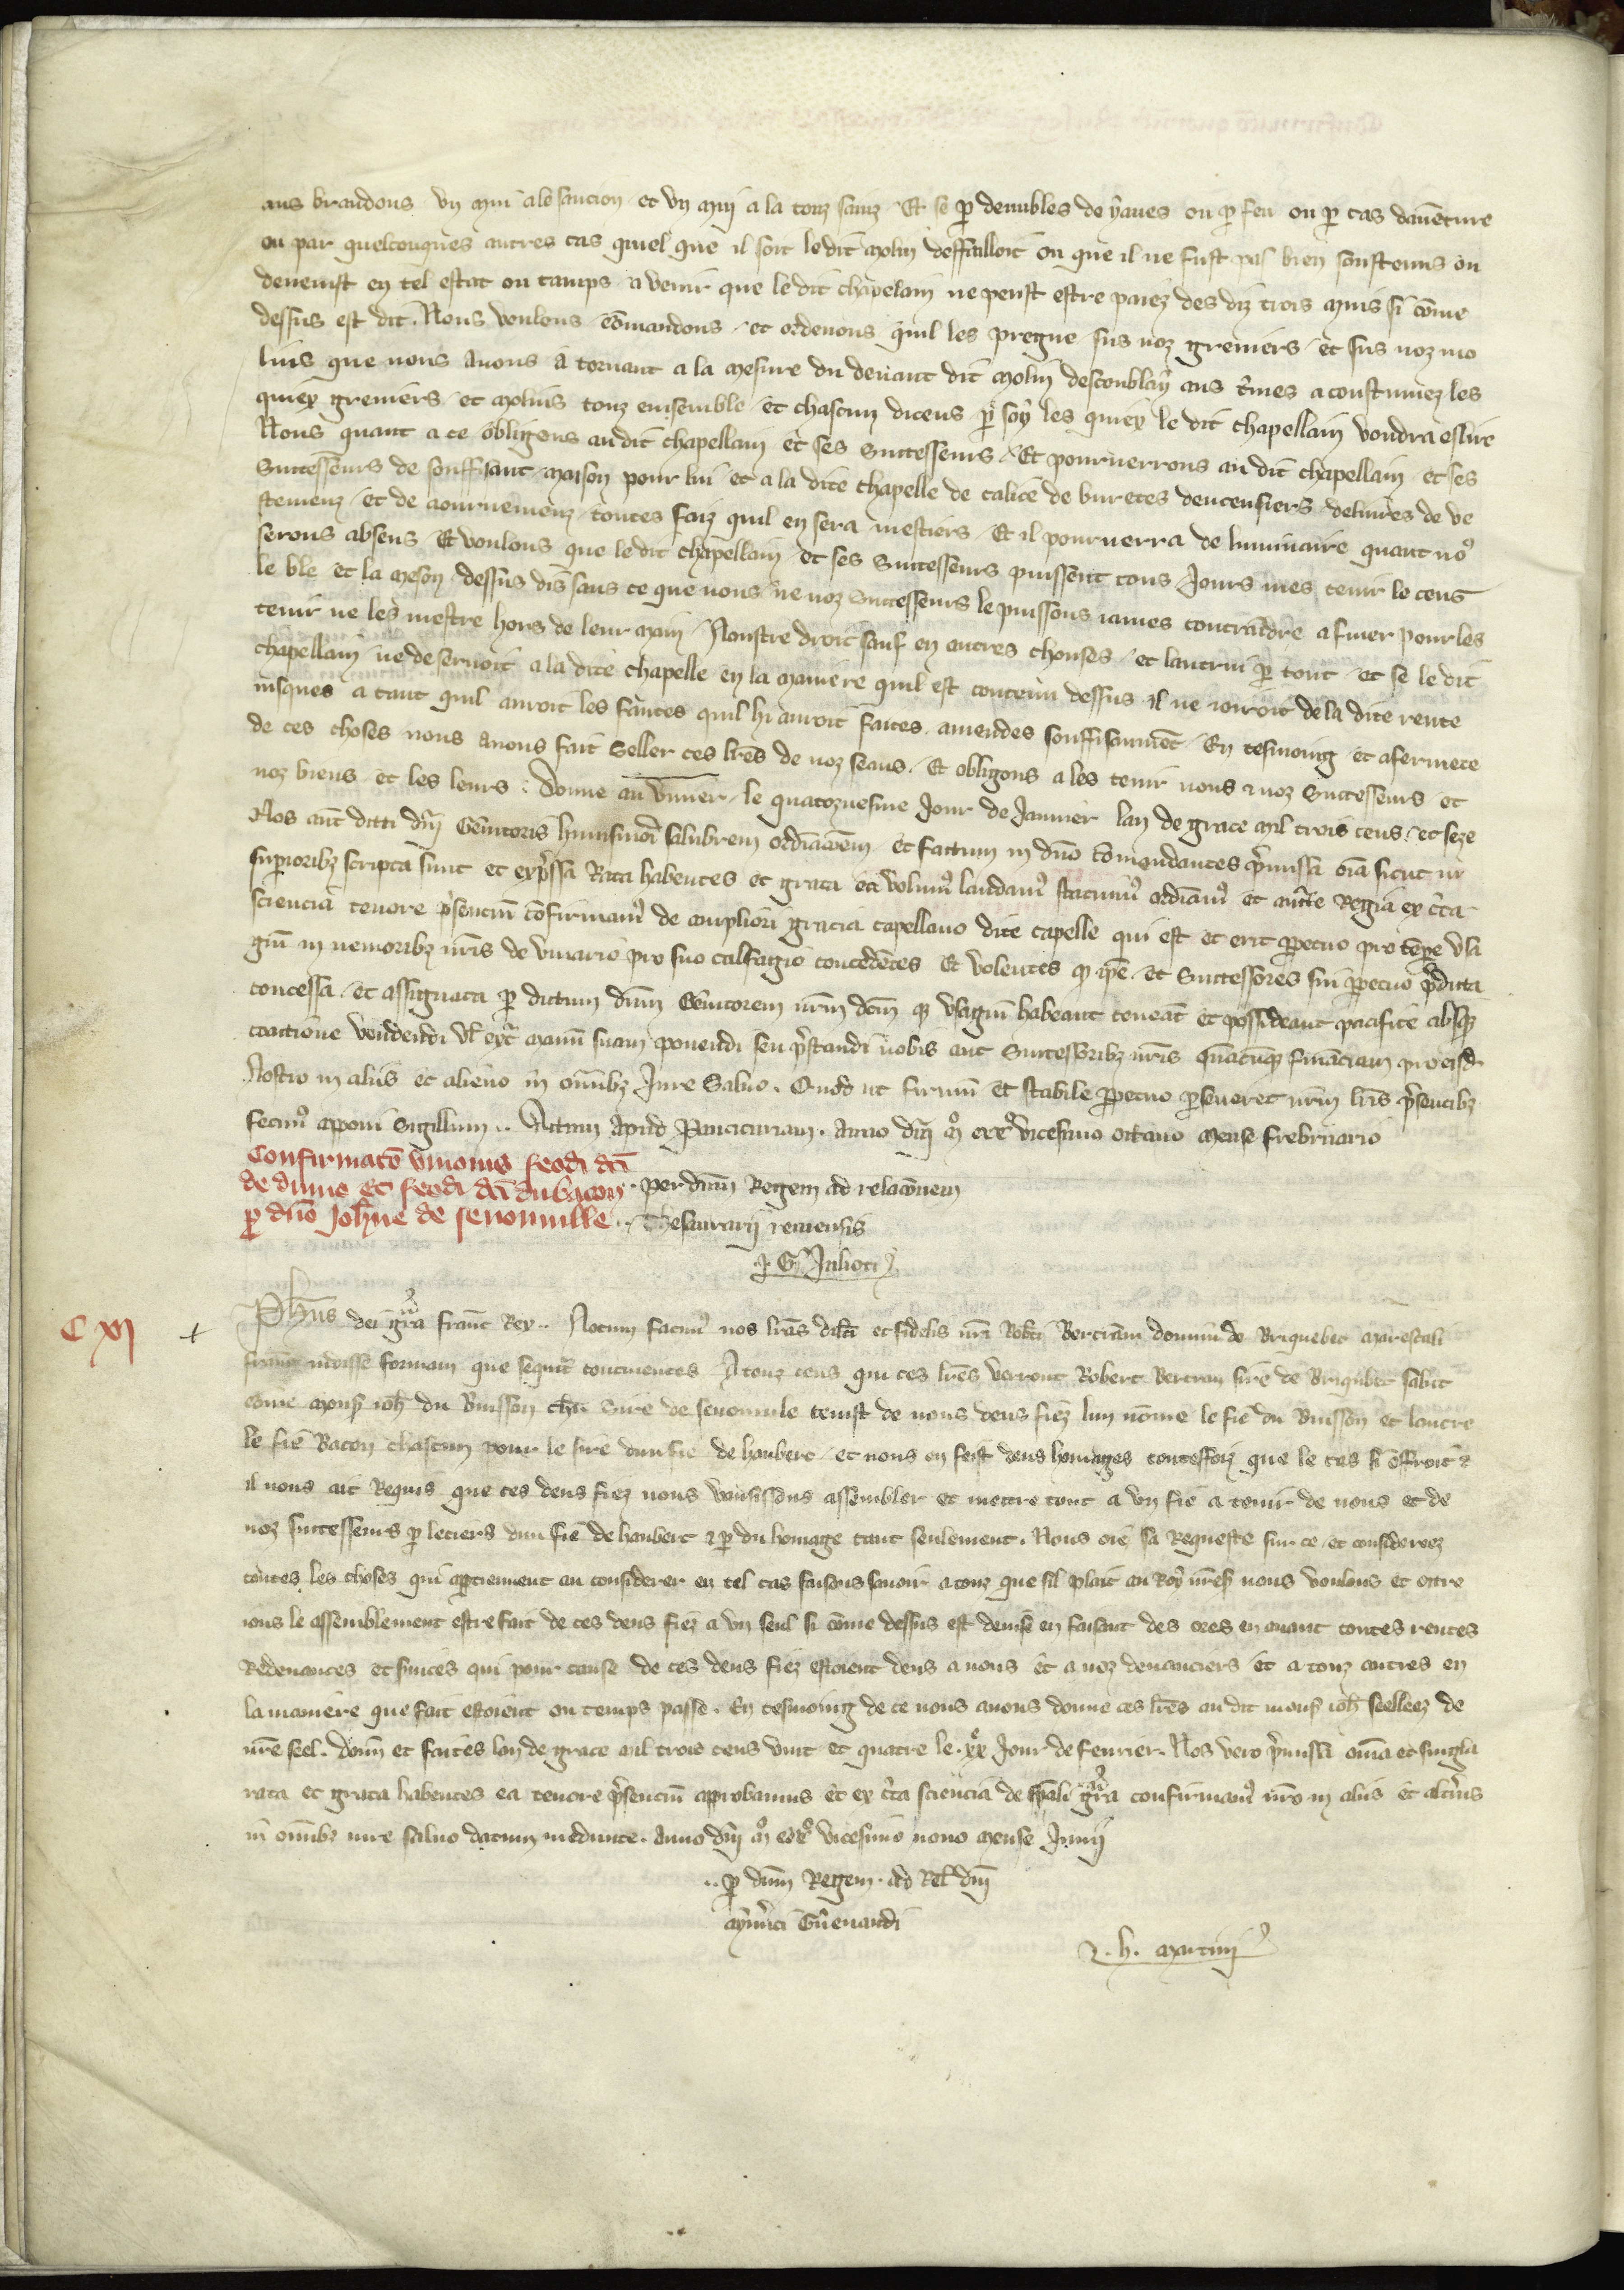 aus brandons vn mui a le sancion et vn mui a la touz sainz Et se ꝑ demibles de yaues ou ꝑ feu ou ꝑ cas dauenture
ou par quelconques autres cas quiel que il soit le dit molin deffailloit ou que il ne fust pas bien soustenus ou
deuenist en tel estat ou tamps a venir que le dit chapelain ne peust estre paiez des diz trois muis si cōme
dessus est dit. Nous voulons cōmandons et ordenons quil les pregne sus noz greniers et sus noz mo
lins que nous auons a tornant a la mesure du deuant dit molin descoublay aus tmes acoustumez les
quiex greniers et molins touz ensemble et chascun diceus ꝑ soy les quiex le dit chapellain voudra eslire
Nous quant a ce obligons au dit chapellain et ses Successeurs Et pourverrons au dit chapellain et ses
Successeurs de souffisant maison pour lui et a la dite chapelle de calice de buretes dencensiers deliures de ve
stemenz et de aournemenz toutes faiz quil en sera mestiers Et il pourverra de luminaire quant no9
serons absens Et voulons que le dit chapellain et ses Successeurs puissent tous Jours mes tenir le cens
le ble et la meson dessus dis sans ce que nous ne noz Successeurs le puissons iames contraidre a finer pour les
tenir ne les mestre hors de leur main Noustre droit sauf en autres chouses et lautrui ꝑ tout et se le dit
chapellain ne deseruoit a la dite chapelle en la maniere quil est contenu dessus il ne ioiroit de la dite rente
iusques a tant quil auroit les fautes quil hi auroit faites amendes souffisaument En tesmoing et afermete
de ces choses nous auons fait Seller ces lres de noz seaus Et obligons a les tenir nous & noz Successeurs et
noz biens et les leurs Donne au viuier le quatozuesme Jour de Januier lan de grace mil trois cens et seze
Nos aut dicti dni Genitoris huiusmodi salubrem ordinacoem et factum in dno cōmendantes pmissa oia sicut in
supioribz scripta sunt et expssa Rata habentes et grata ea volum9 laudam9 statuim9 ordinam9 et aucte Regia ex cta
sciencia tenore psentium cōfirmam9 de ampliori gracia capellano dite capelle qui est et erit ꝑpetuo pro tēpe vsa
giū in nemoribz nris de viuario pro suo calfagio concedētes Et volentes ꝙ ipe et Successores sui ꝑpetuo pdicta
concessa et assignata ꝑ dictum dnm Genitorem nrm dcm ꝙ vsagiū habeant teneāt et possideant pacifice absqz
coactione vendendi vl ext manū suam ponendi seu pstandi nobis aut Successoribz nris quācūqz financiam pro eisd
Nostro in aliis et alieno in oībz Jure Saluo. Quod ut firmū et stabile ꝑpetuo ꝑseueret nrm lris psentibz
fecim9 apponi Sigillum .. Actum Apud Pancicuriam. anno dni mo cccxo vicesimo octauo mense frebruario
Confirmatō vnionis feodi dci
de dumo et feodi dci du bacon
ꝑ dno Johne de senouuille ..
Per dnm Regem ad relacionem
Thesaurarii remensis
G Julioti
C XI +
Phus dei gra franc Rex .. Notum facim9 nos lras dilcti et fidelis nri Robti Bertram domini de Briquebec marescalli
franc vidisse formam que sequit continentes A touz ceus qui ces lres verront Robert Bertran sire de Briqubec salut
cōme mons ioh du Buisson chr Sire de senouuile tenist de nous deus fiez lun nōme le fie du Buisson et lautre
le fie Bacon chascun pour le sire dun fie de haubert et nous en feist deus homages toutesfoiz que le cas si offroit &
il nous ait Requis que ces deus fiez nous vousissons assembler et mettre tout a vn fie a tenir de nous et de
noz successeurs ꝑ letiers dun fie de haubert & ꝑ du homage tant seulement. Nous oie sa Requeste sur ce et considereez
toutes les choses qui apptiennent au considerer en tel cas faisons sauoir a touz que sil plait au Roy nres nous voulons et ottre
ions le assemblement estre fait de ces deus fiez a vn seul si cōme dessus est deuise en faisant des ores en auant toutes rentes
Redeuances et suices qui pour cause de ces deus fiez estoient deus a nous et a noz deuanciers et a touz autres en
la maniere que fait estoient ou temps passe. En tesmoing de ce nous auons donne ces lres au dit mons ioh seelleez de
nre seel. Donn et faites lan de grace mil trois cens vint et quatre le xxe Jour de feurier. Nos vero pmissa omia et singla
rata et grata habentes ea tenore psentium aprobamus et ex cta sciencia de spali gra confirmam9 nro in aliis et altius
in omībz iure saluo datum medunte. Anno dni mo ccco vicesimo nono mense Junii
.. ꝑ dnm Regem. ad Rel dni
aymici Guenandi
h. martini